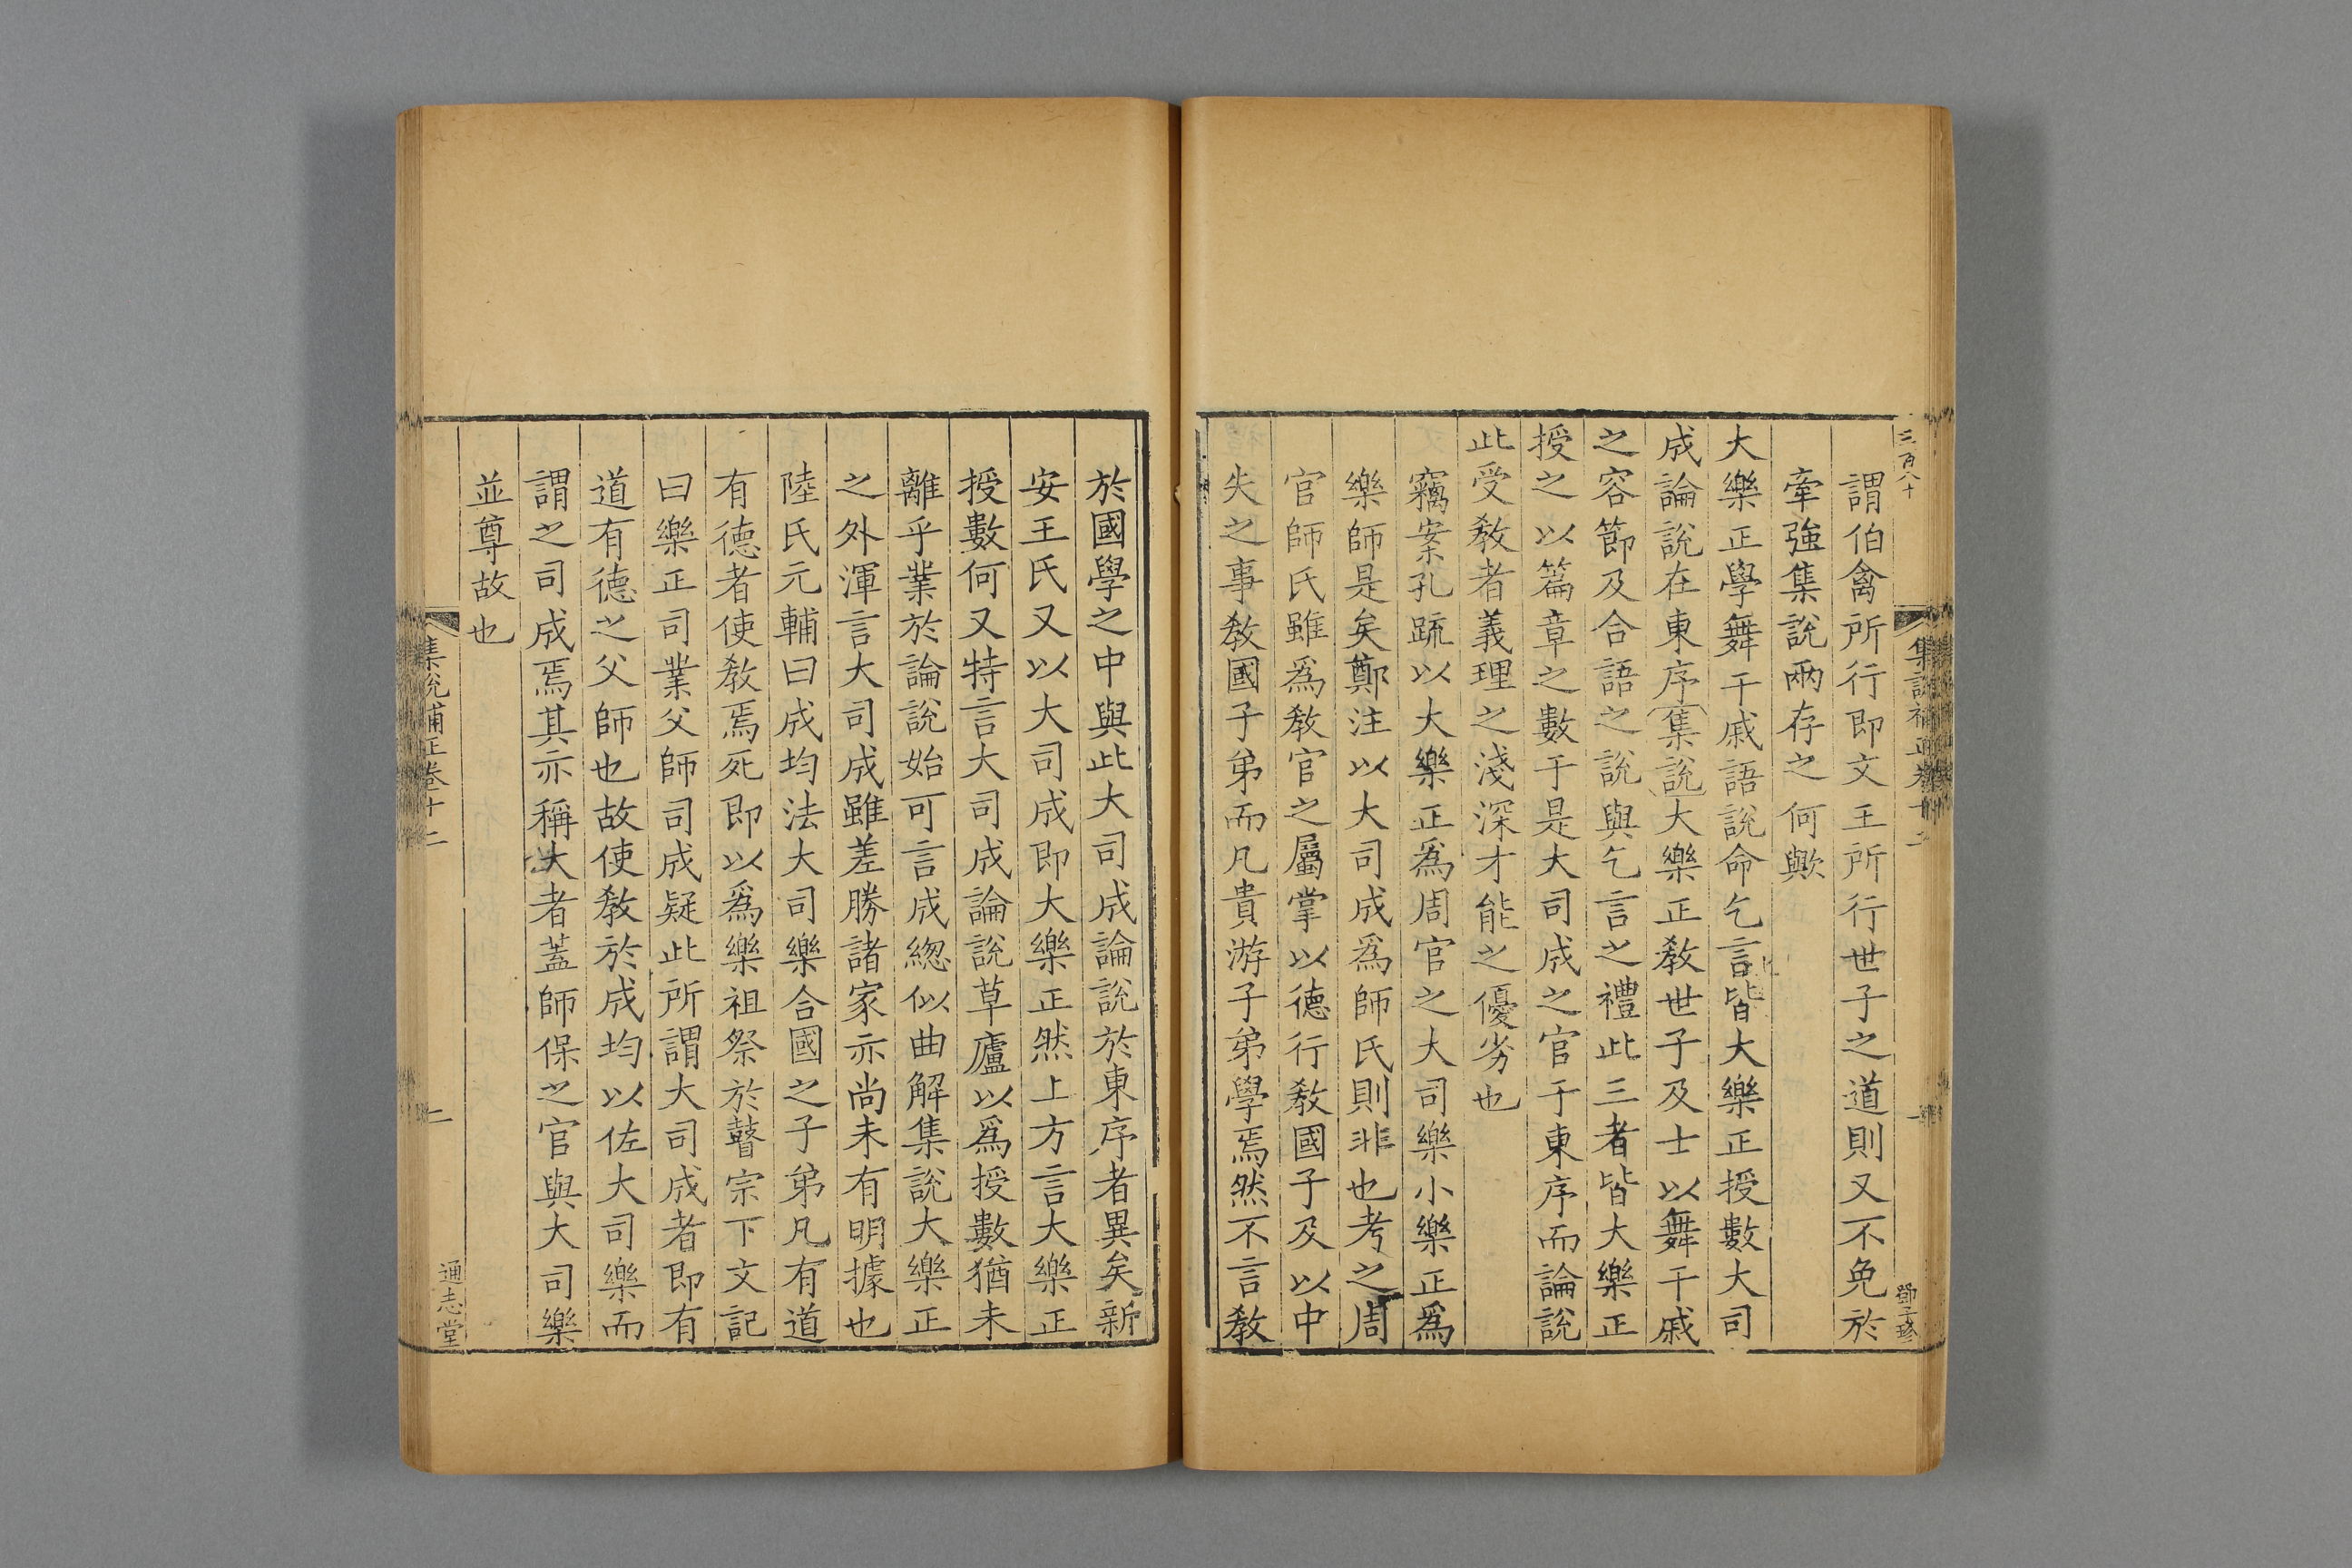 三百八十
謂伯禽所行即文王所行世子之道則又不免於
牽強集說兩存之何歟
大樂正學舞干戚語說命乞言皆大樂正授數大司
成論說在東序集說大樂正敎世子及士以舞干戚
之容節及合語之說與乞言之禮此三者皆大樂正
授之以篇章之數于是大司成之官于東序而論說
此受敎者義理之淺深才能之優劣也
竊案孔疏以大樂正爲周官之大司樂小樂正爲
樂師是矣鄭注以大司成爲師氏則非也考之周
官師氏雖爲敎官之屬掌以德行敎國子及以中
失之事敎國子弟而凡貴游子弟學焉然不言敎
集說補正卷十二
一
鄧子珍
於國學之中與此大司成論說於東序者異矣新
安王氏又以大司成即大樂正然上方言大樂正
授數何又特言大司成論說草廬以爲授數猶未
離乎業於論說始可言成緫似曲解集說大樂正
之外渾言大司成雖差勝諸家亦尚未有明據也
陸氏元輔曰成均法大司樂合國之子弟凡有道
有德者使敎焉死即以爲樂祖祭於瞽宗下文記
曰樂正司業父師司成疑此所謂大司成者即有
道有德之父師也故使敎於成均以佐大司樂而
謂之司成焉其亦稱大者蓋師保之官與大司樂
並尊故也
集說補正卷十二
二
通志堂